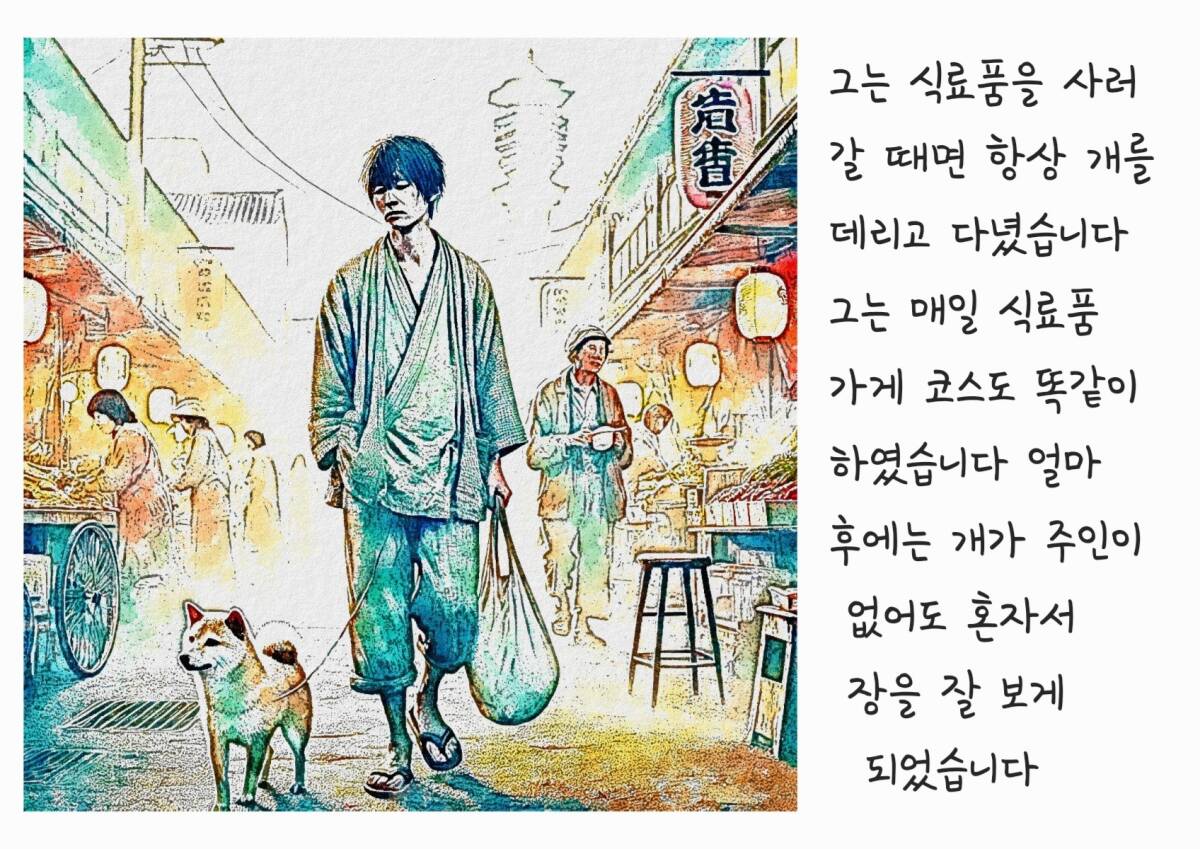 그는 식료품을 사러
갈 때면 항상 개를
데리고 다녔습니다
그는 매일 식료품
가게 코스도 똑같이
하였습니다 얼마
후에는 개가 주인이
없어도 혼자서
장을 잘 보게
되었습니다